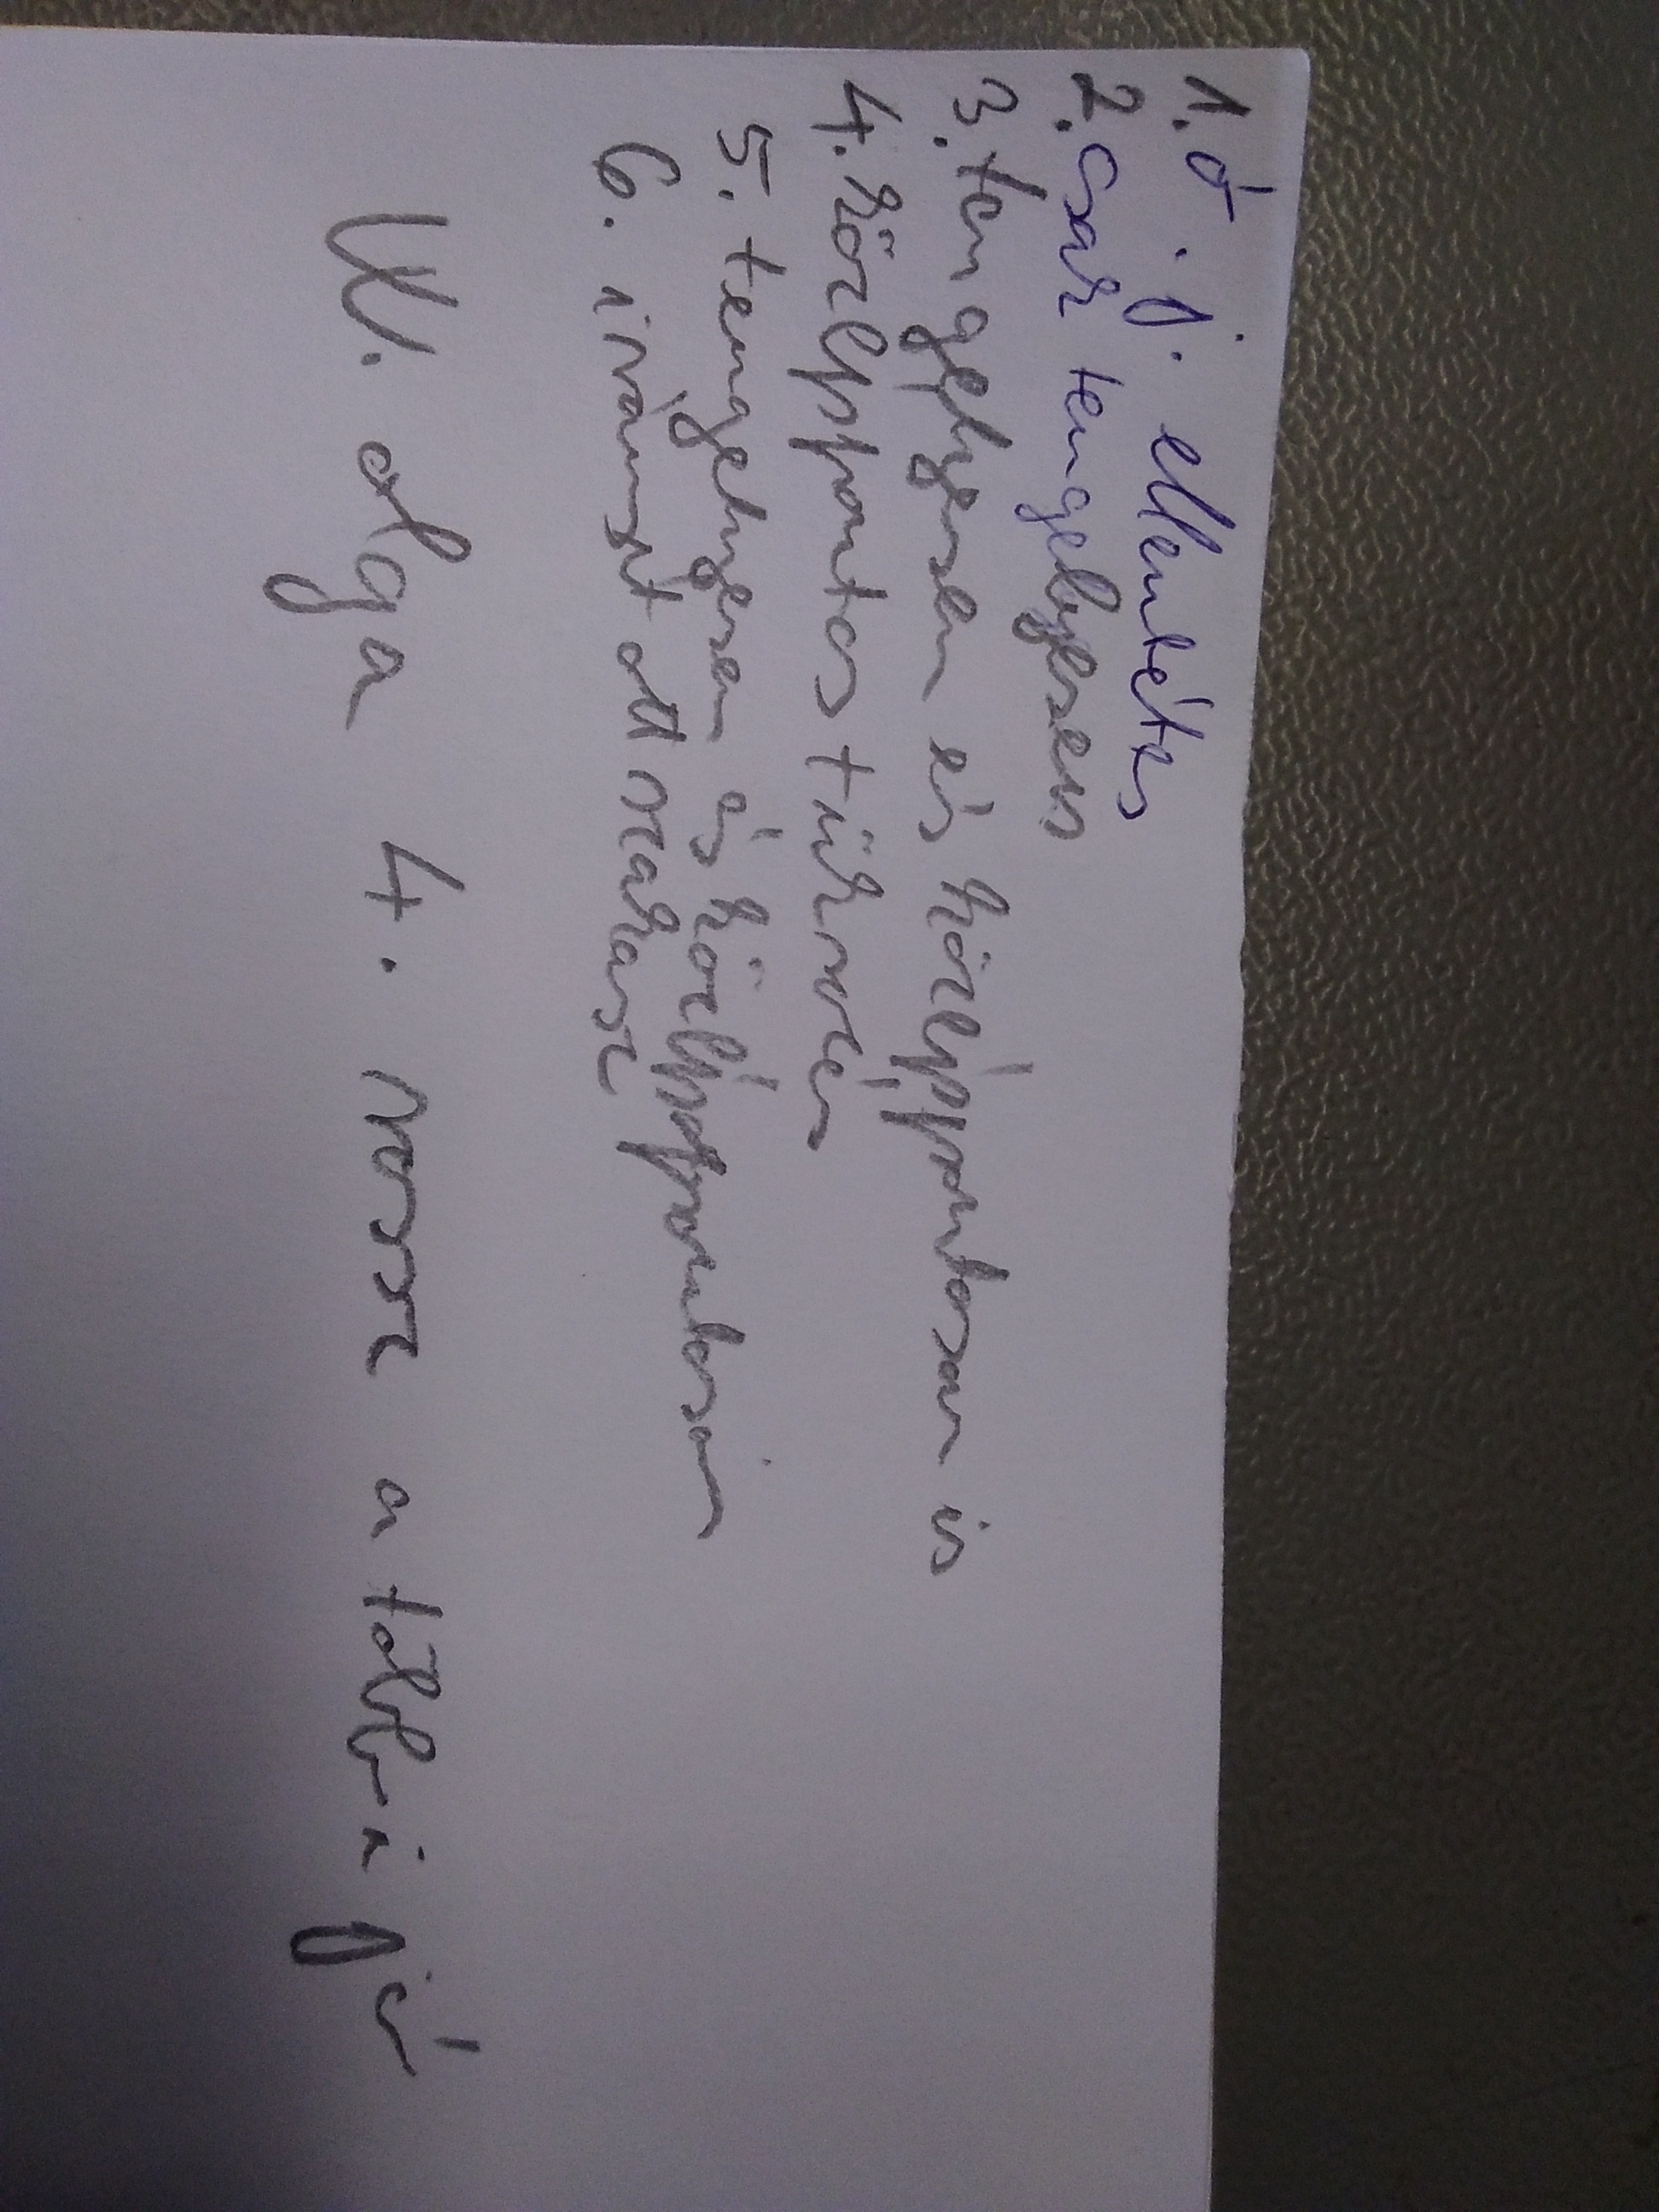 1. ó. j. ellentétes
2. csak tengelyesen
3. tengelyesen és középpontosan is
4. középpontos tükrözés
5. tengelyesen és középpontosan
6. irányított szakasz
W. olga 4. rossz a többi jó